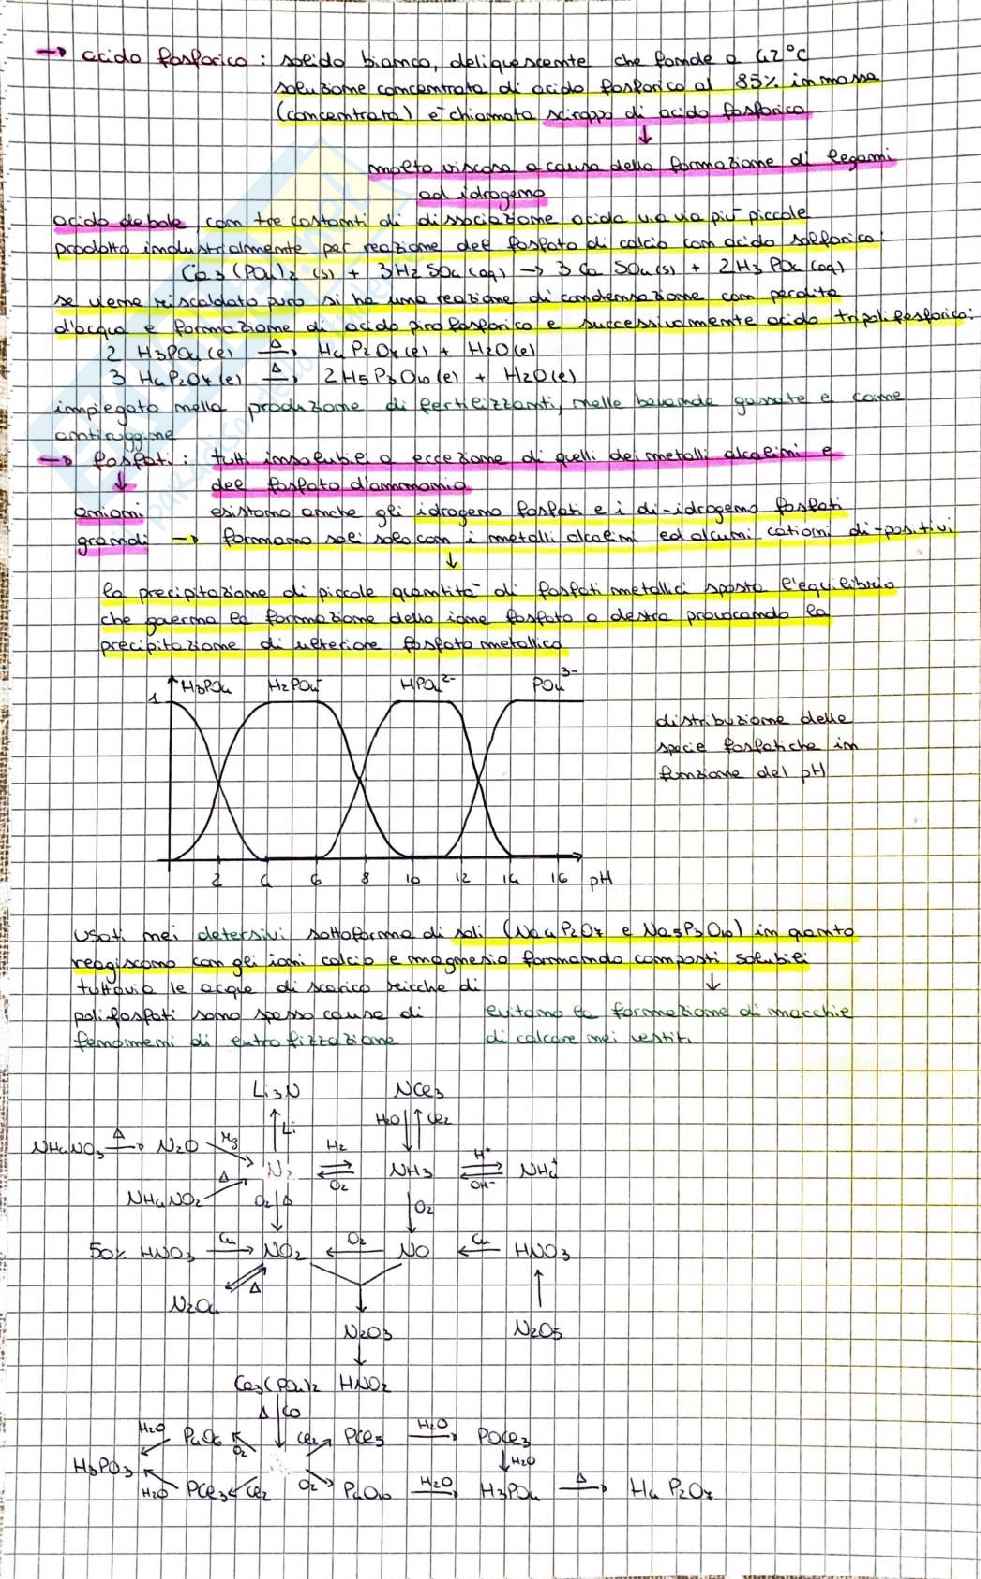 → acido fosforico : solido bianco, deliquescente che fonde a 42°C
soluzione concentrata di acido fosforico al 85% in massa
(concentrata) è chiamata sciroppo di acido fosforico
↓
molto viscosa a causa della formazione di legami
ad idrogeno
acido debole, con tre costanti di dissociazione acida via via più piccole
prodotto industrialmente per reazione del fosfato di calcio con acido solforico:
Ca3(PO4)2 (s) + 3H2SO4(aq) → 3CaSO4(s) + 2H3PO4(aq)
se viene riscaldato puro si ha una reazione di condensazione con perdita
d'acqua e formazione di acido pirofosforico e successivamente acido tripolifosforico:
2 H3PO4(l) Δ→ H4P2O7(l) + H2O(l)
3 H4P2O7(l) Δ→ 2H5P3O10(l) + H2O(l)
impiegato nella produzione di fertilizzanti, nelle bevande gassate e come
antiruggine
→ fosfati : tutti insolubili a eccezione di quelli dei metalli alcalini e
↓ del fosfato d'ammonio
anioni esistono anche gli idrogeno fosfati e i di-idrogeno fosfati
grandi → formano sali solo con i metalli alcalini ed alcuni cationi di-positivi
↓
la precipitazione di piccole quantità di fosfati metallici sposta l'equilibrio
che governa la formazione dello ione fosfato a destra provocando la
precipitazione di ulteriore fosfato metallico
1 H3PO4 H2PO4- HPO4 2- PO4 3-
distribuzione delle
specie fosfatiche in
funzione del pH
2 4 6 8 10 12 14 16 pH
usati nei detersivi sottoforma di sali (Na4P2O7 e Na5P3O10) in quanto
reagiscono con gli ioni calcio e magnesio formando composti solubili
tuttavia le acque di scarico ricche di ↓
polifosfati sono spesso causa di evitano la formazione di macchie
fenomeni di eutrofizzazione di calcare nei vestiti
Li3N NCl3
↑ Li H2O ↓↑ Cl2
NH4NO3 Δ→ N2O Mg→ N2 H2 ⇌ O2 NH3 H+ ⇌ OH- NH4+
NH4NO2 Δ→ O2 ↓ ↓ O2
50% HNO3 Cu→ NO2 ←O2 NO ←Cu HNO3
Δ ↑
N2O4 ↓
N2O3 N2O5
↓
Ca3(PO4)2 HNO2
Δ ↓ CO
H2O P4O6 O2 Cl2 PCl5 H2O→ POCl3
H3PO3 ↓ H2O
H2O PCl3 ← Cl2 O2 P4O10 H2O→ H3PO4 Δ→ H4P2O7